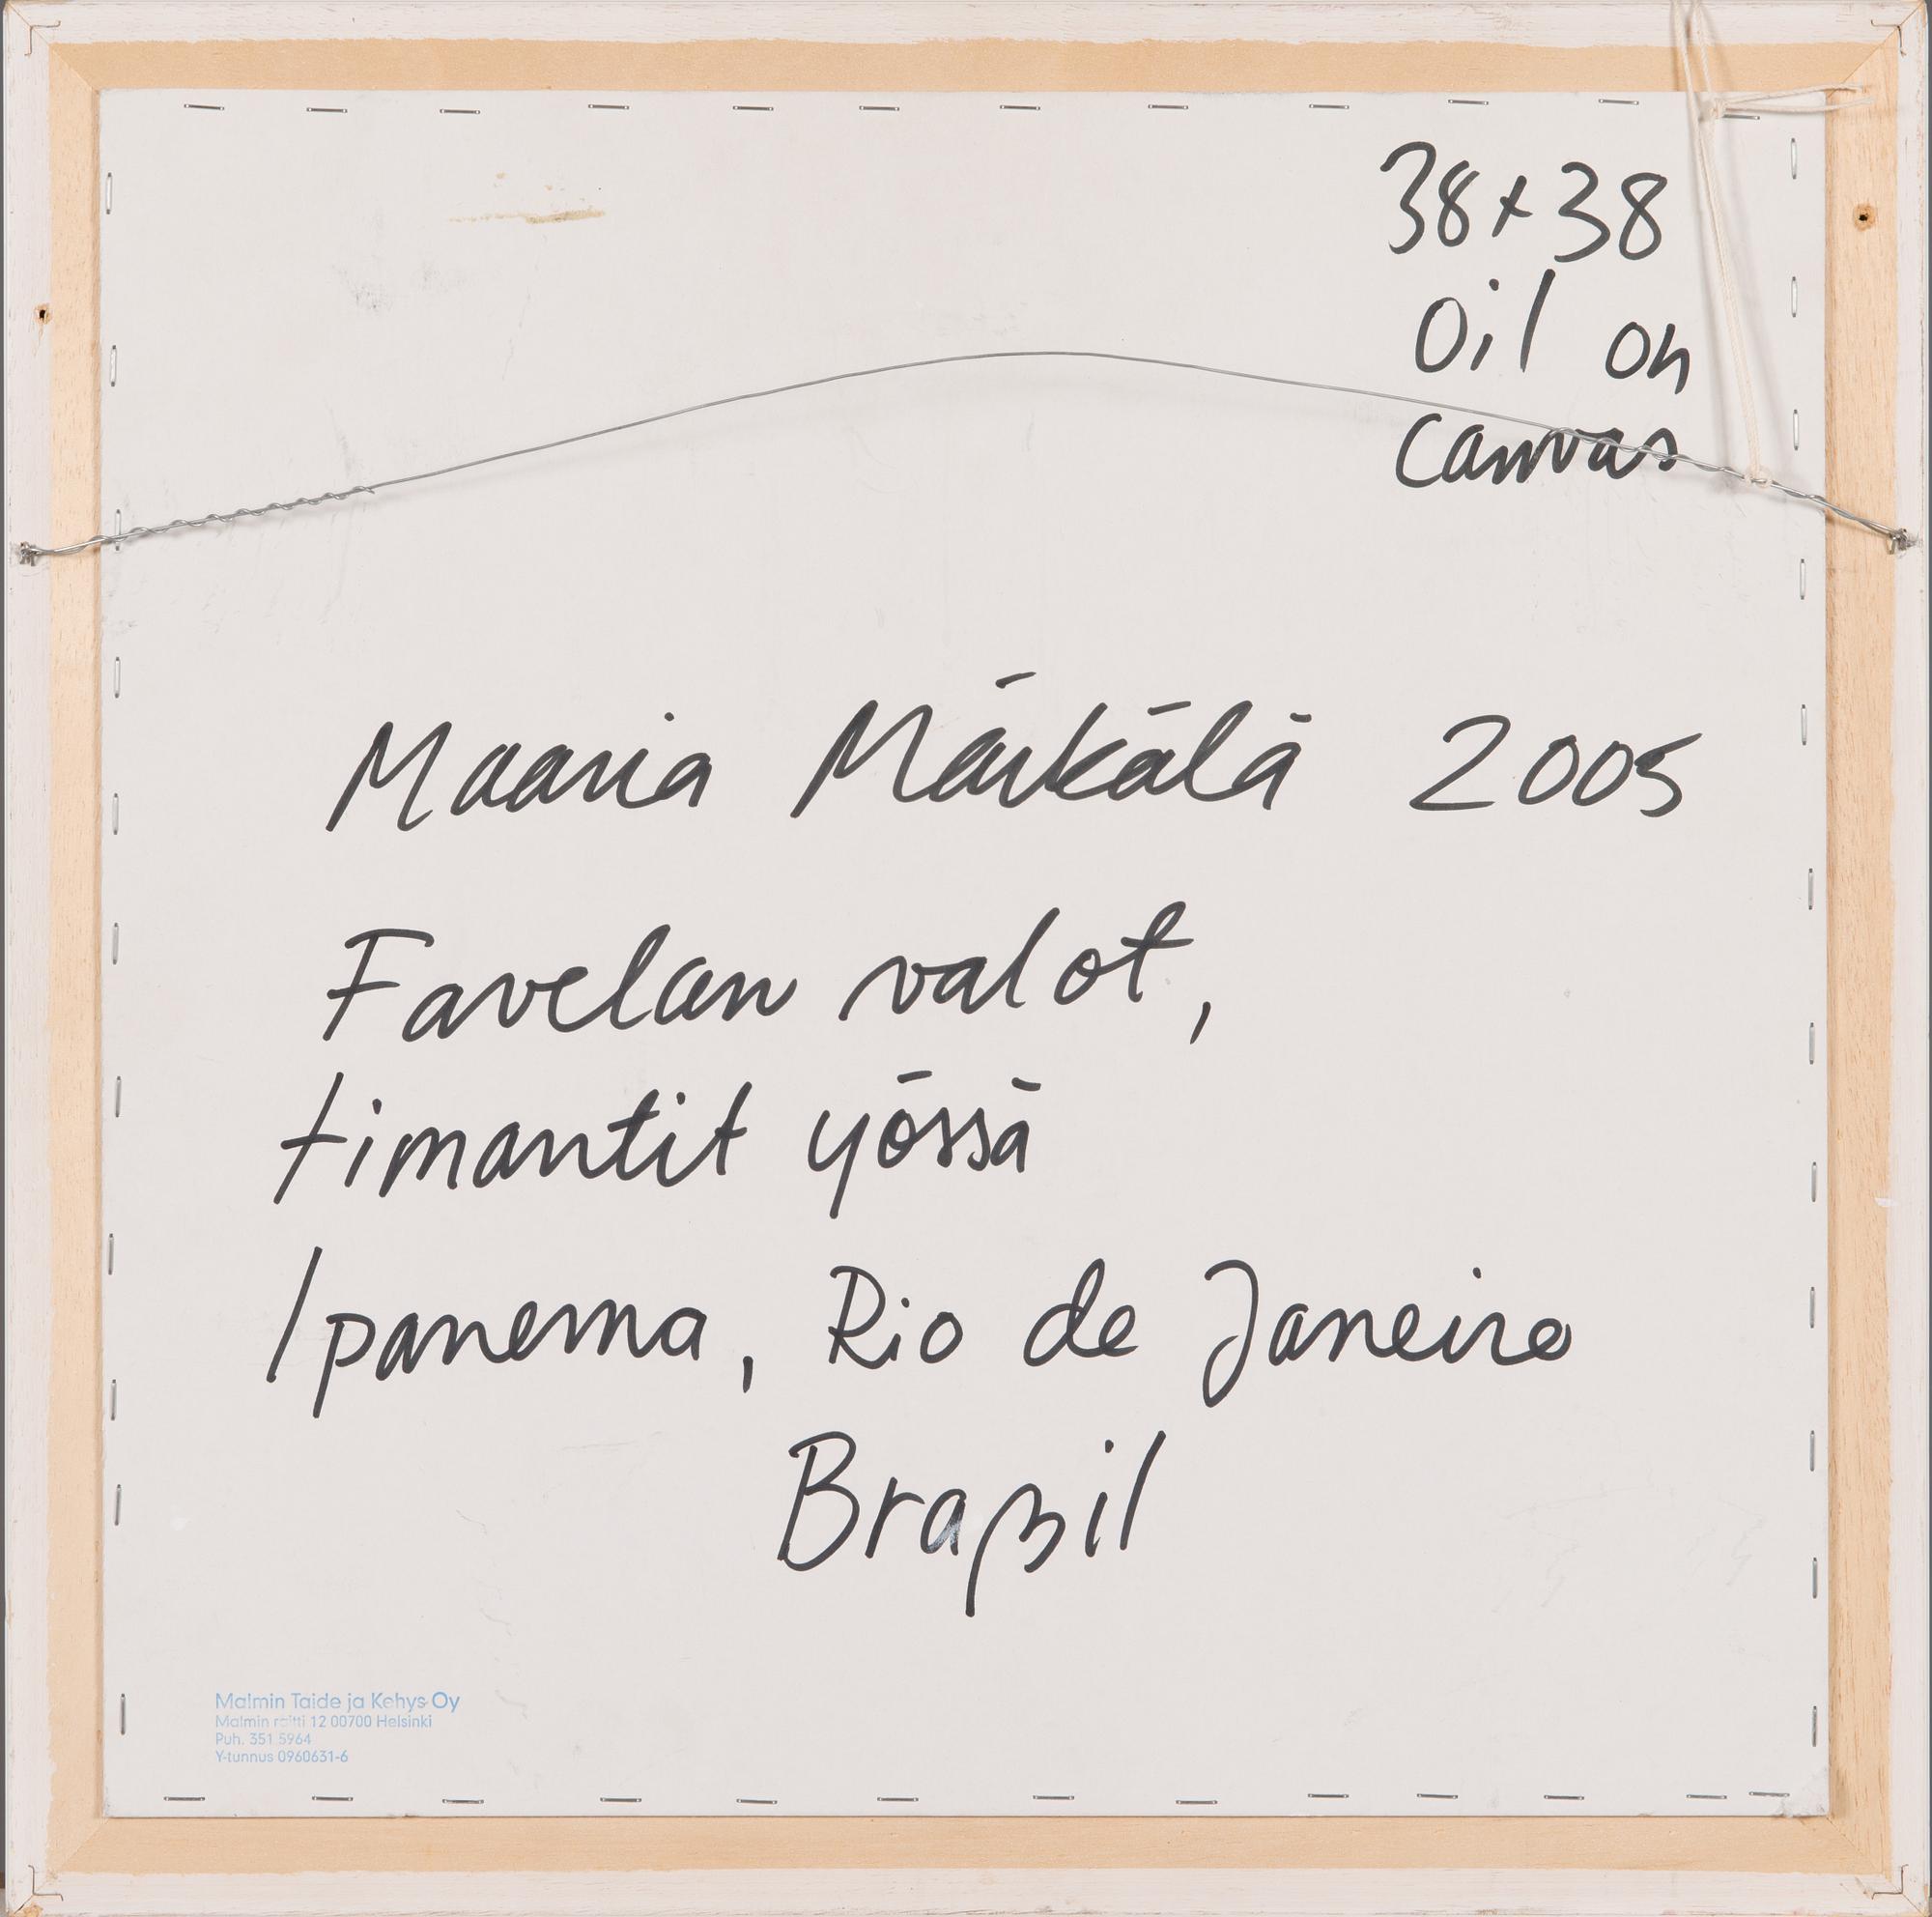 38x38
Oil on
canvas
Maaria Märkälä 2005
Favelan valot,
timantit yössä
Ipanema, Rio de Janeiro
Brazil
Malmin Taide ja Kehys Oy
Malmin raitti 12 00700 Helsinki
Puh. 351 5964
Y-tunnus 0960631-6